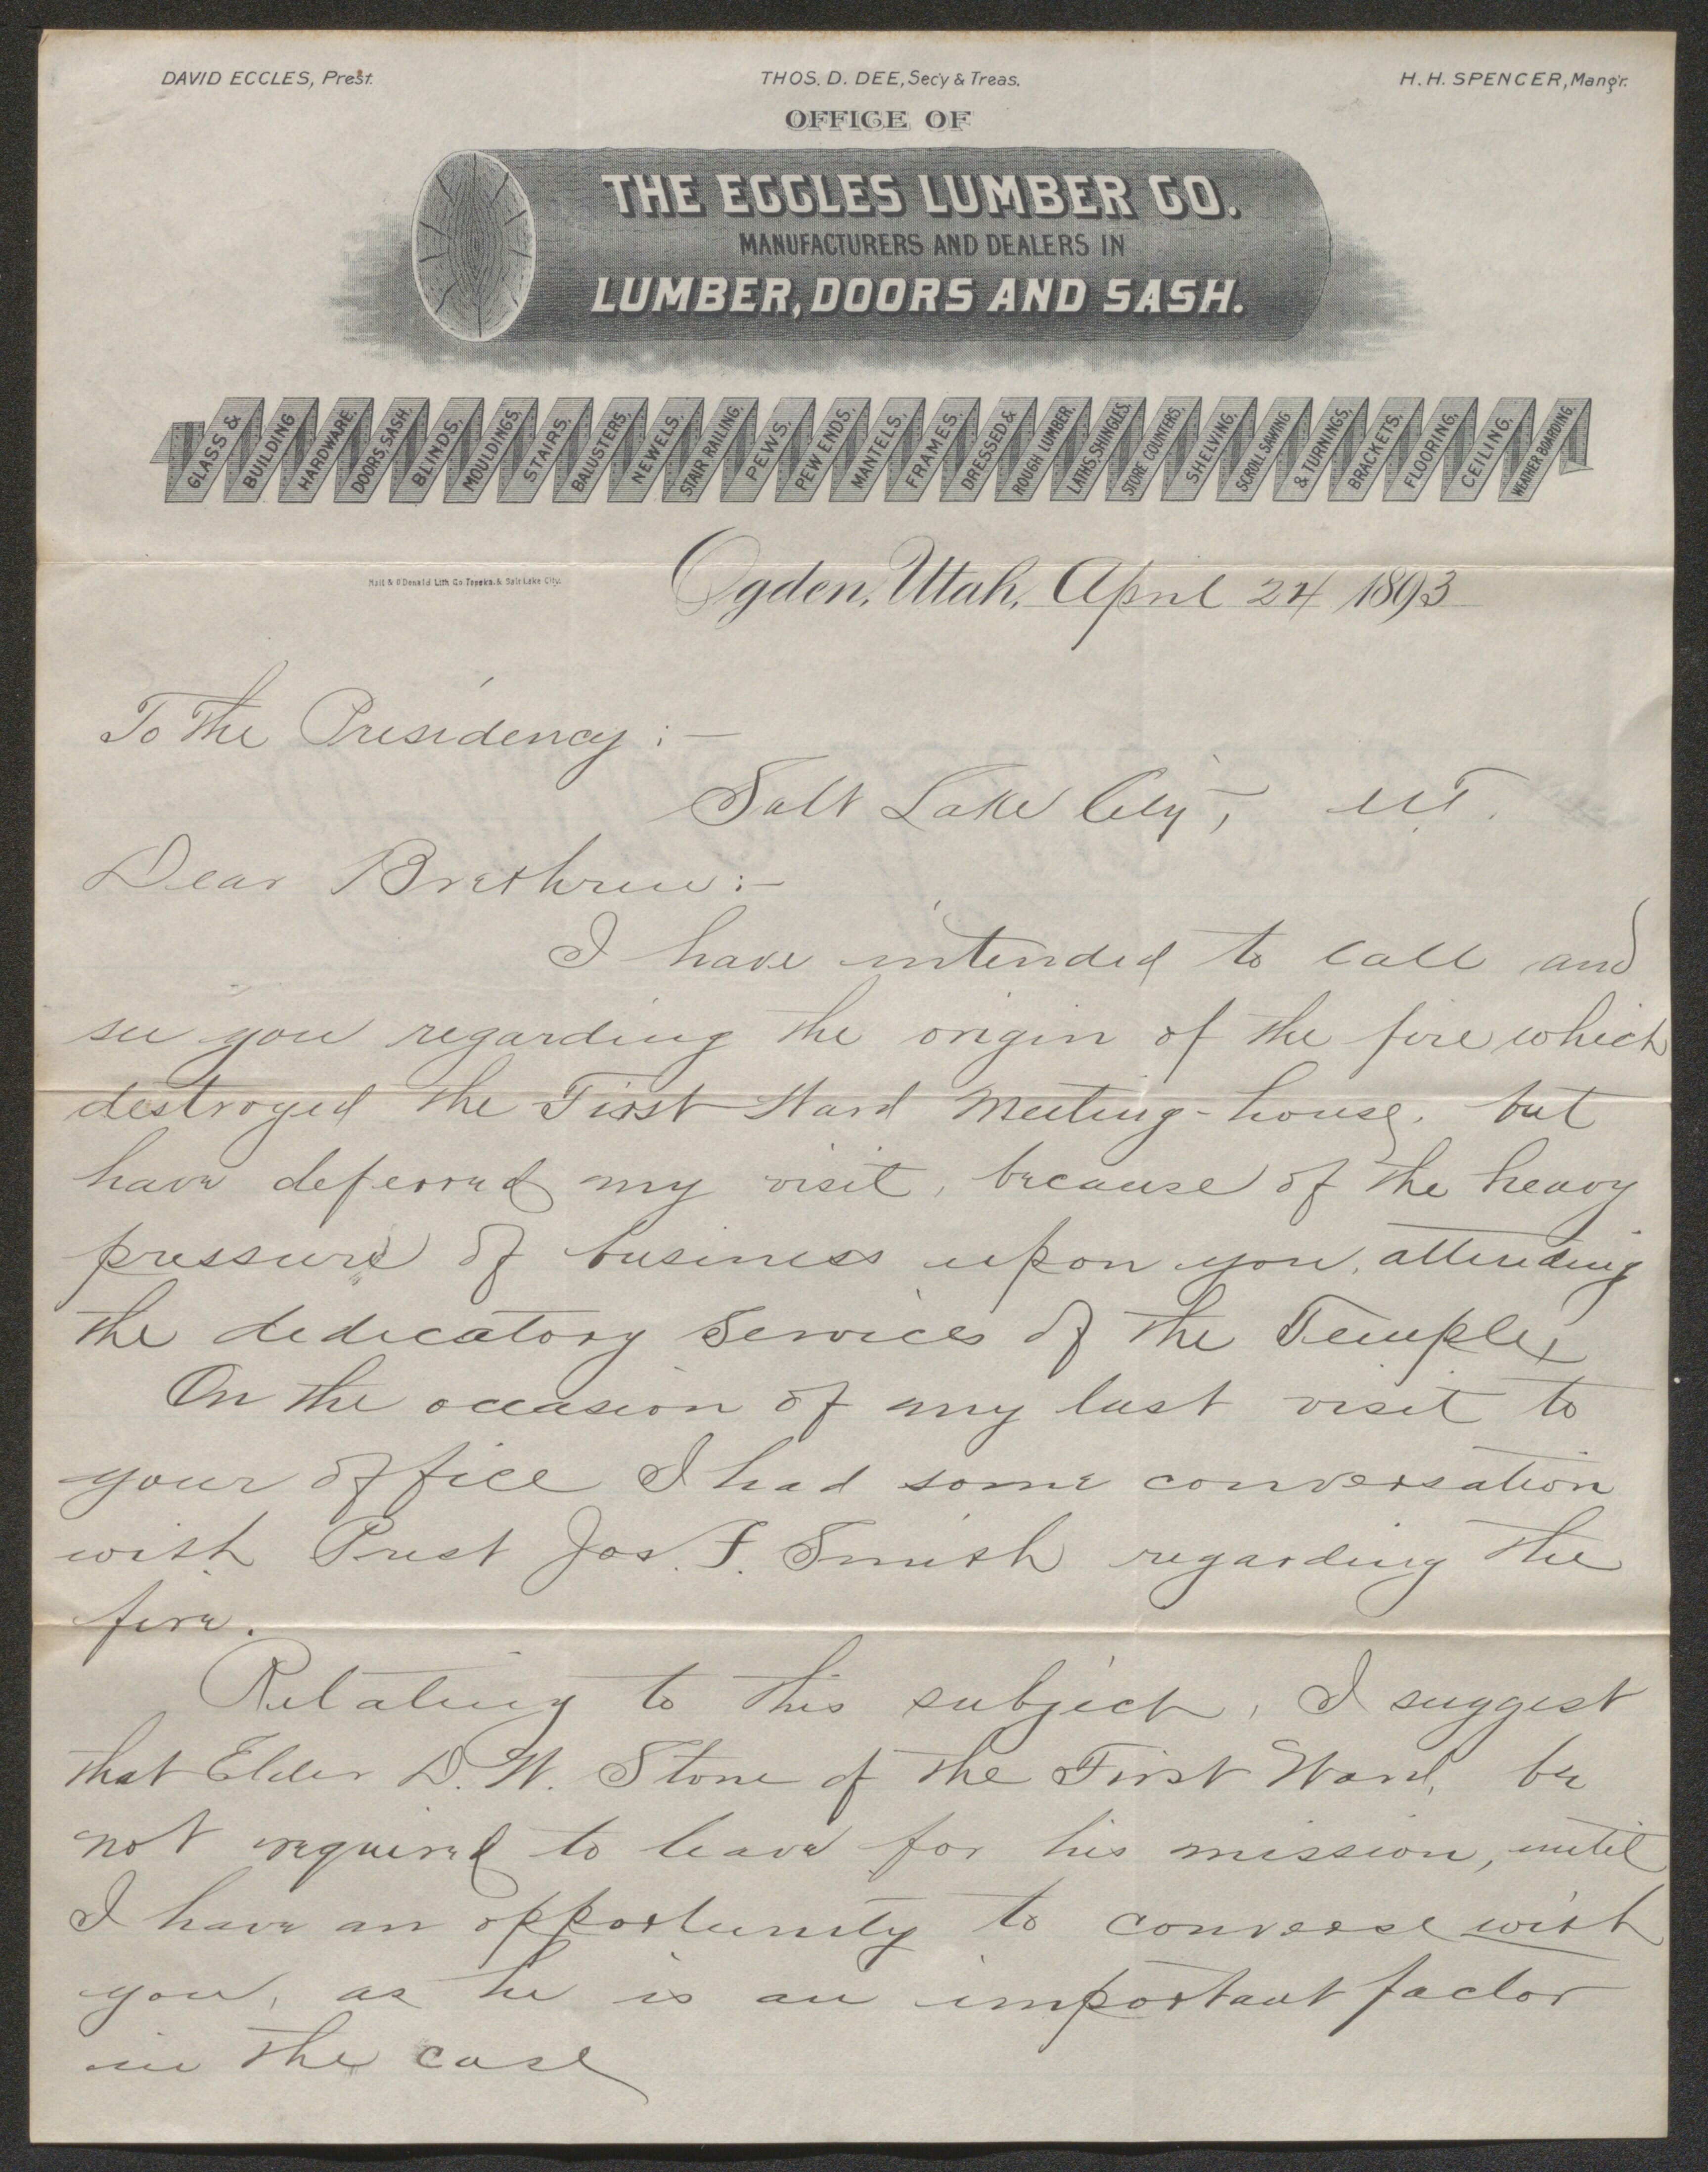 DAVID ECCLES, Prest.
THOS. D. DEE, Sec'y & Treas.
H. H. SPENCER, Mang'r.
OFFICE OF
THE ECCLES LUMBER CO.
MANUFACTURERS AND DEALERS IN
LUMBER, DOORS AND SASH.
GLASS & BUILDING HARDWARE. DOORS, SASH. BLINDS. MOULDINGS. STAIRS. BALUSTERS. NEWELS. STAIR RAILING. PEWS. PEW ENDS. MANTELS. FRAMES. DRESSED & ROUGH LUMBER. LATHS. SHINGLES. STORE COUNTERS. SHELVING. SCROLL SAWING & TURNINGS. BRACKETS. FLOORING. CEILING. WEATHER BOARDING.
Hall & O'Donald Lith Co Topeka & Salt Lake City.
Ogden, Utah, April 24 1893
To The Presidency :—
Salt Lake City, U.T.
Dear Brethren :—
I have intended to call and
see you regarding the origin of the fire which
destroyed the First Ward Meeting-house, but
have deferred my visit, because of the heavy
pressure of business upon you, attending
the dedicatory services of the Temple,
On the occasion of my last visit to
your office I had some conversation
with Prest Jos. F. Smith regarding the
fire.
Relating to this subject, I suggest
that Elder D. W. Stone of the First Ward, be
not required to leave for his mission, until
I have an opportunity to converse with
you, as he is an important factor
in the case